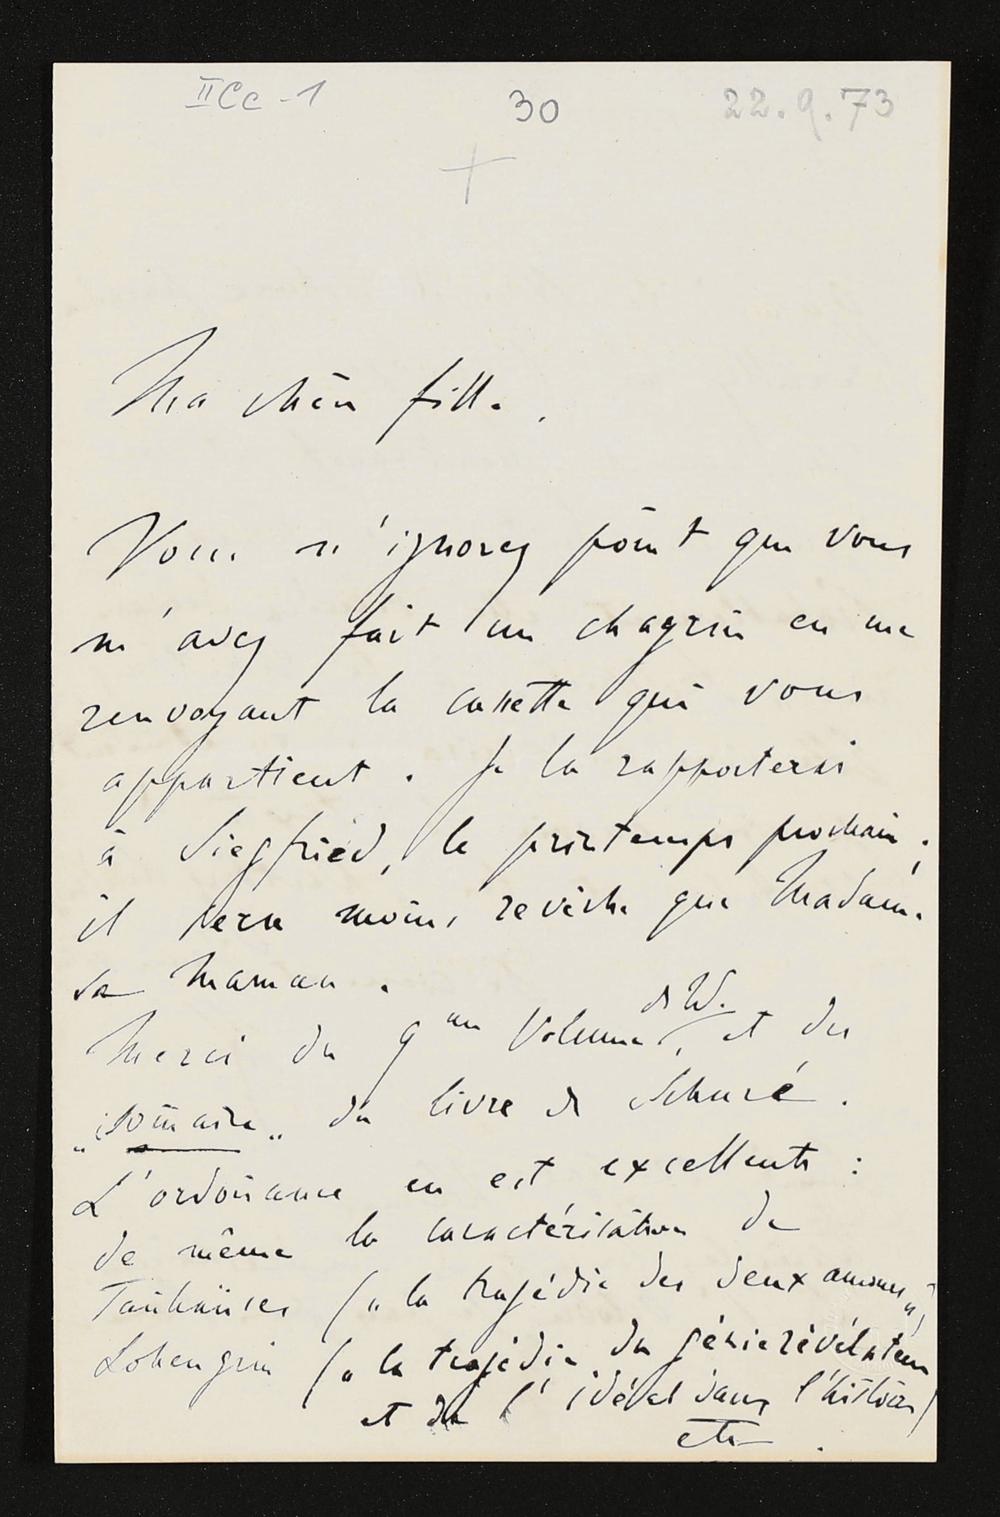 IICc-1 30 22.9.73
Ma chère fille.
Vous n'ignorez point que vous
m'avez fait un chagrin en me
renvoyant la cassette qui vous
appartient. Je la rapporterai
à Siegfried, le printemps prochain;
il sera moins revêche que Madame
sa Maman.
Merci du 9me Volume de W., et du
„somaire„ du livre de Schuré.
L'ordoñance en est excellente:
de même la caractérisation de
Tañhaüser („la tragédie des deux amours„)
Lohengrin („la tragédie du génie révélateur
et de l'idéal dans l'histoire)
etc.